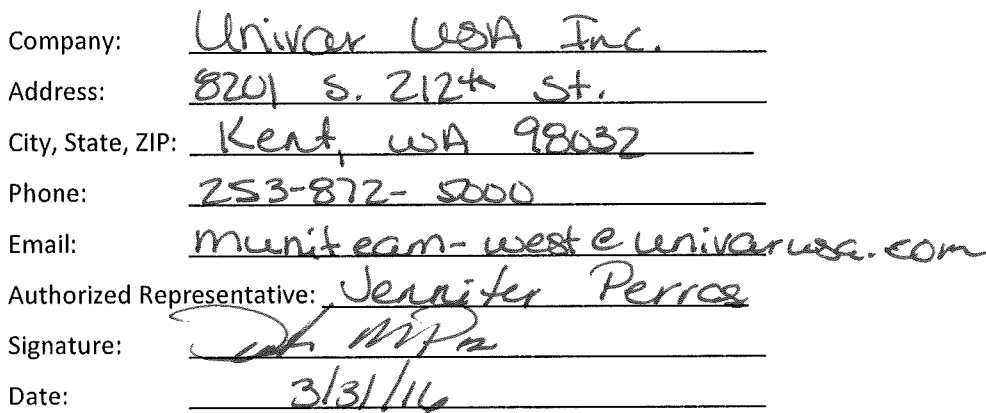 Company: Univar USA Inc.
Address: 8201 S. 212th St.
City, State, ZIP: Kent, WA 98032
Phone: 253-872-5000
Email: muniteam-west@univarusa.com
Authorized Representative: Jennifer Perras
Signature:
Date: 3/31/16